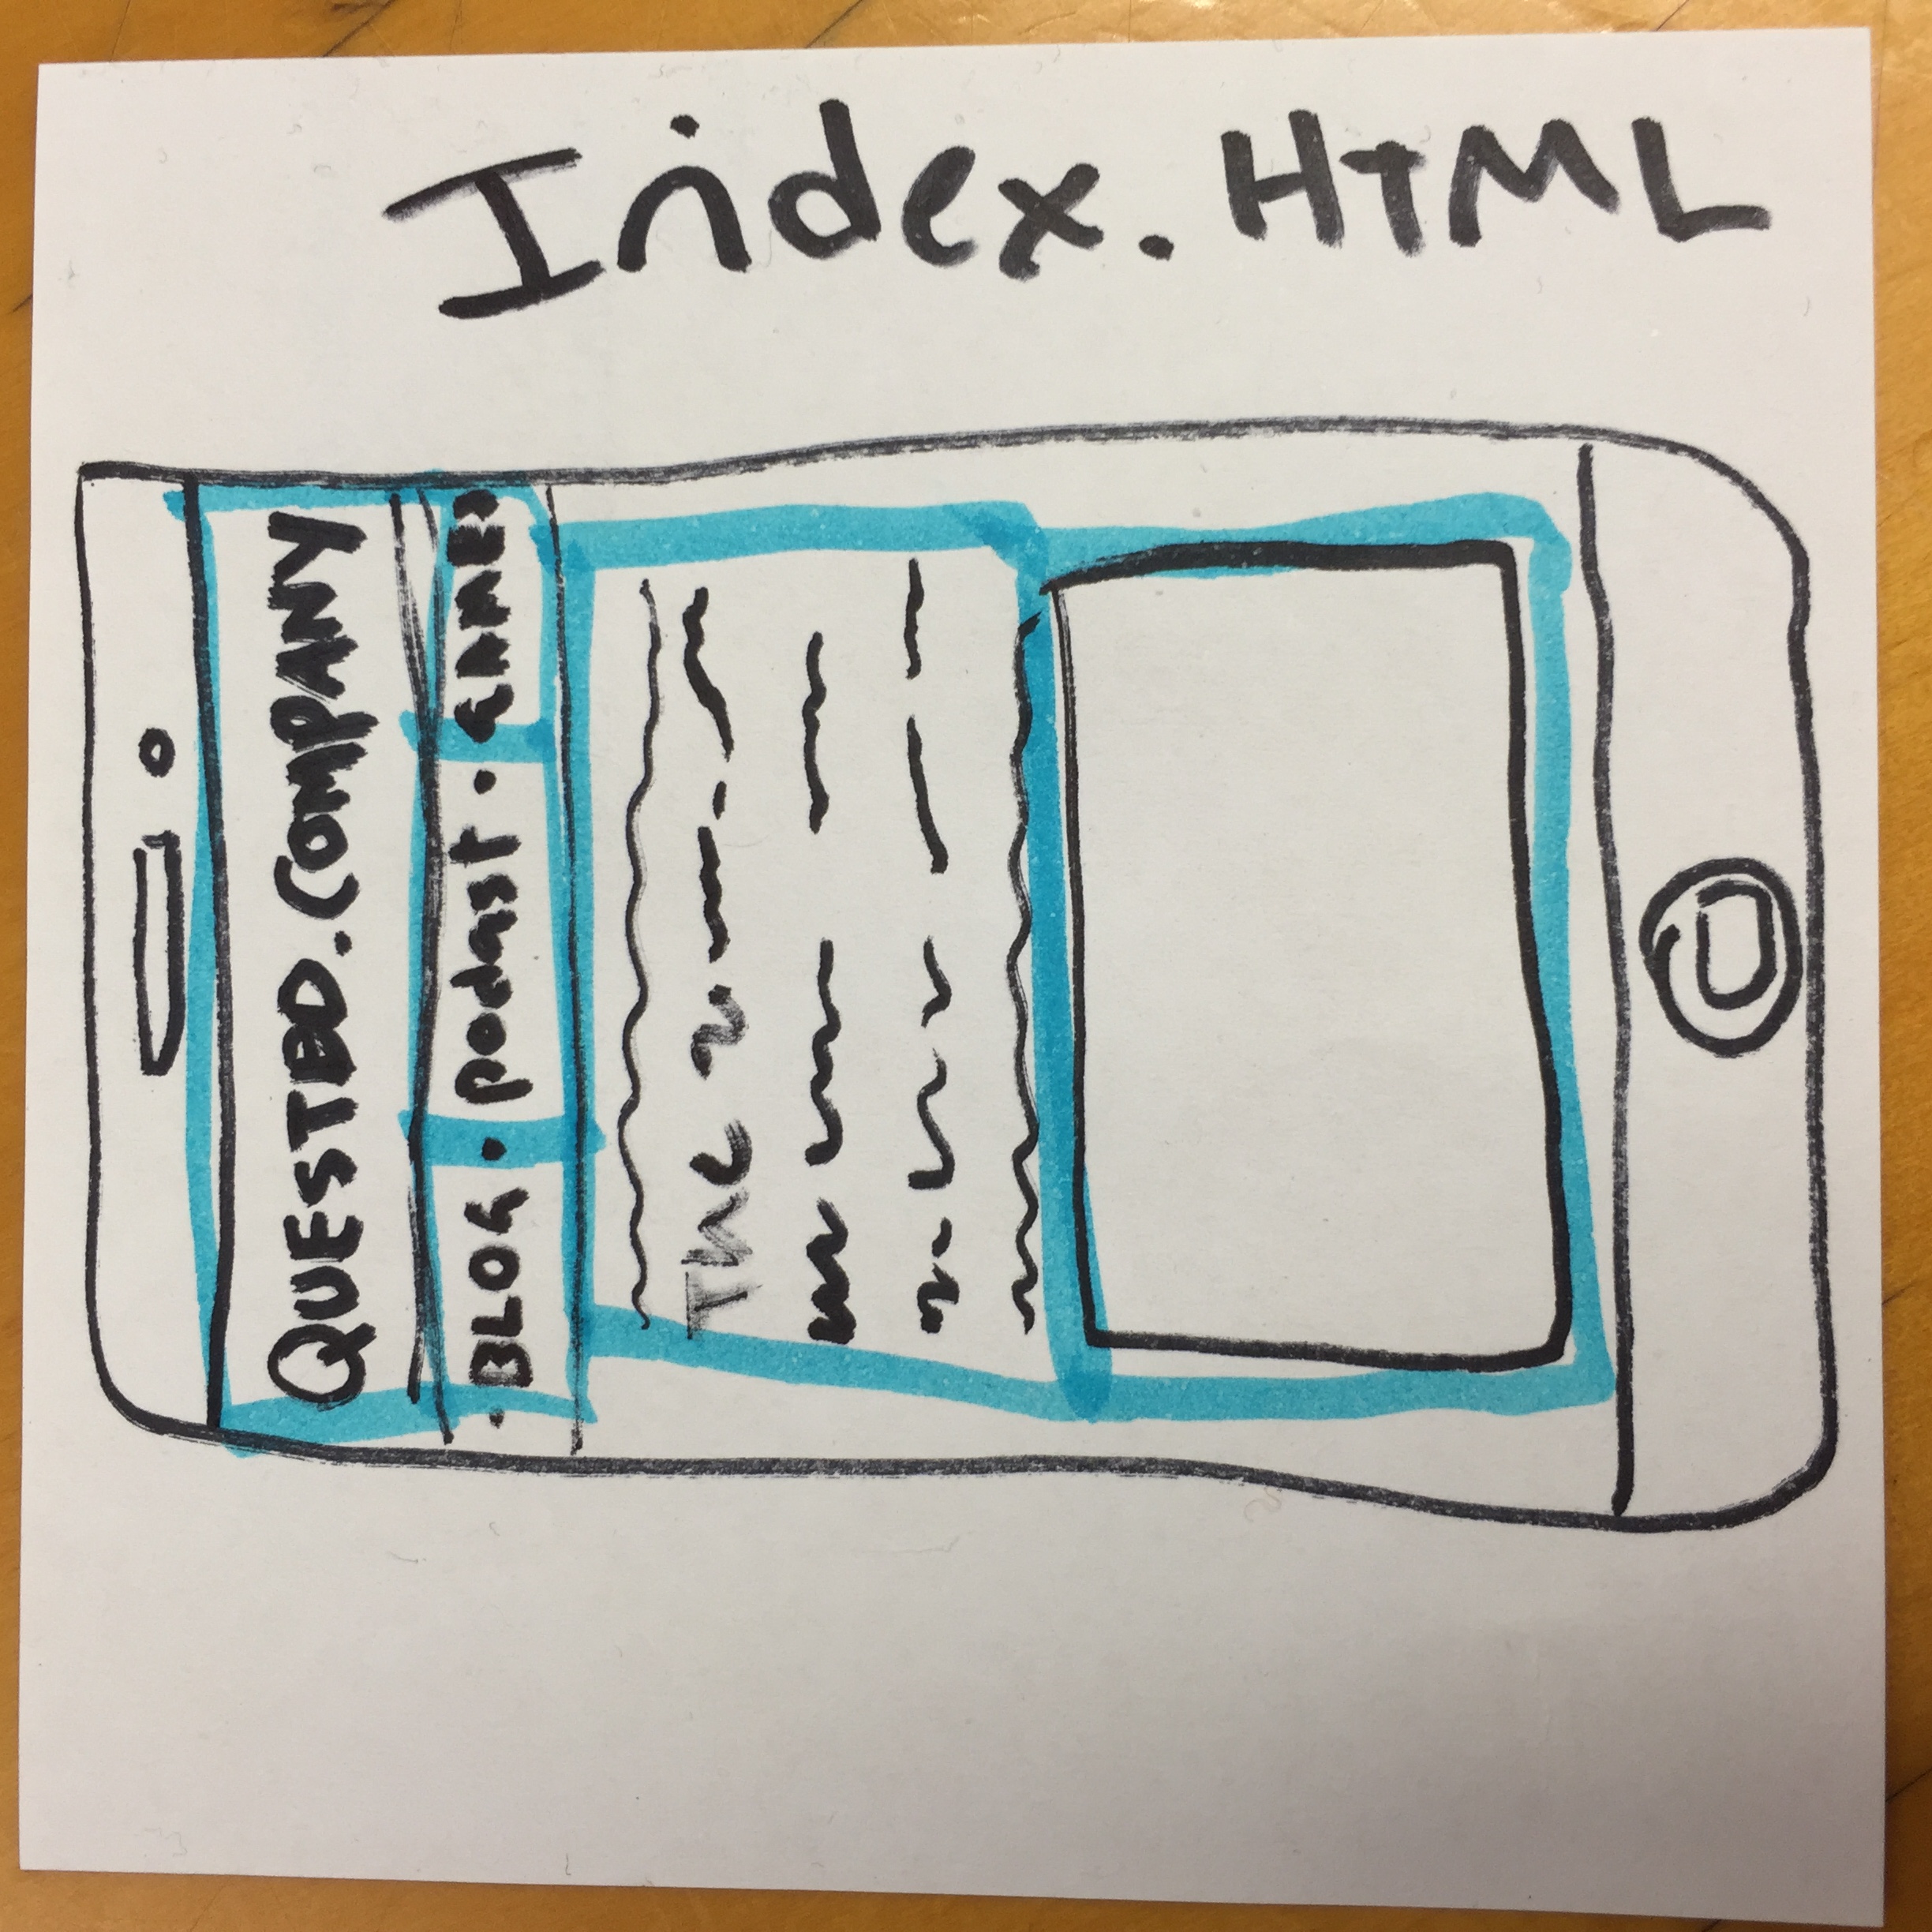 QUESTED.COMPANY
· BLOG · podcast · GAMES
The
Index.HTML